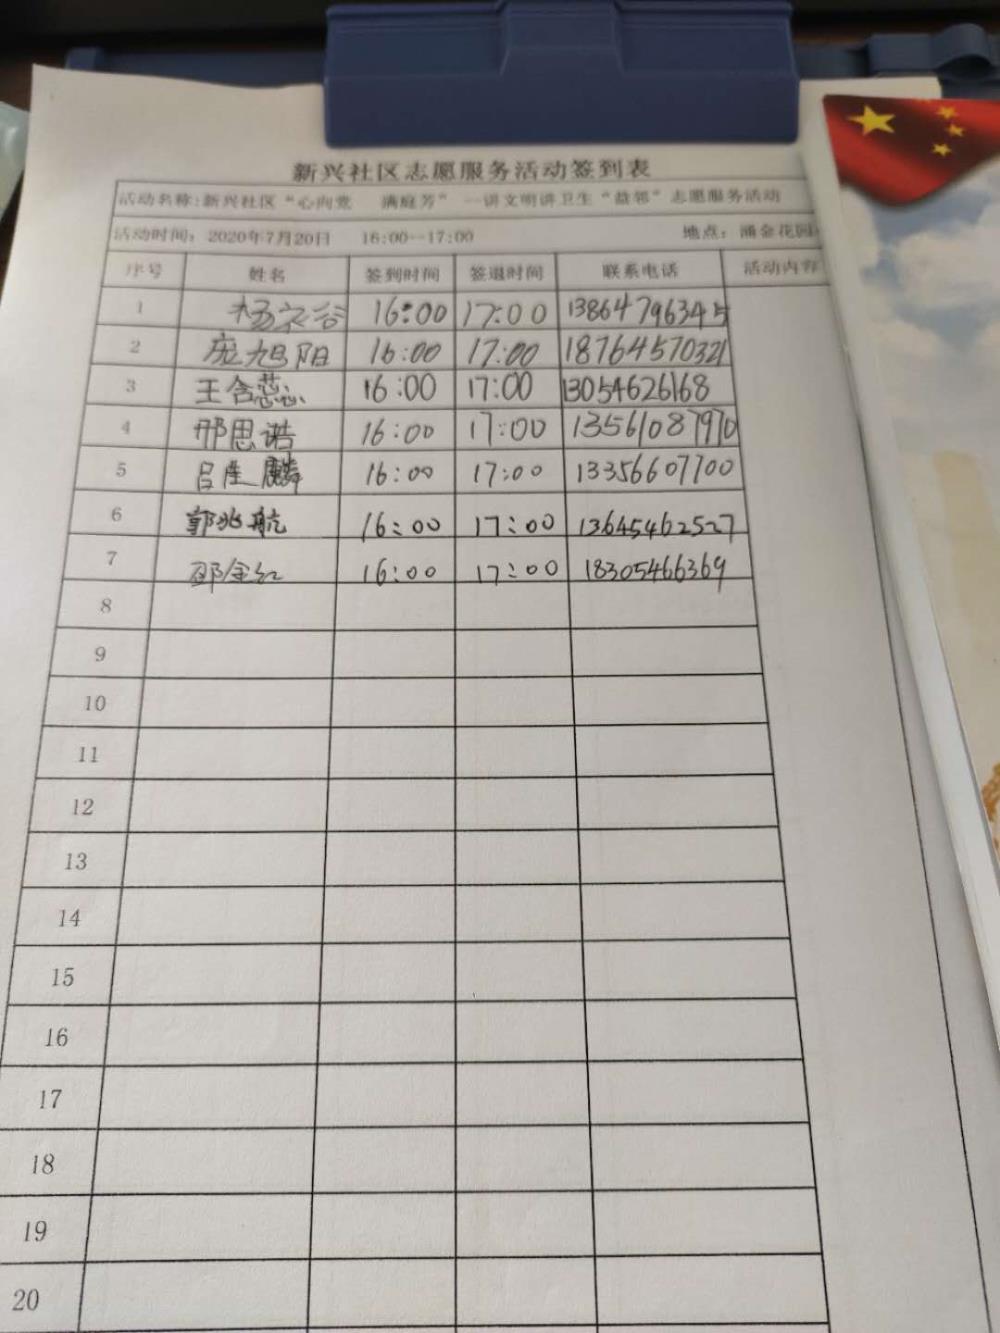 新兴社区志愿服务活动签到表
活动名称:新兴社区“心向党 满庭芳” 一讲文明讲卫生“益邻”志愿服务活动
活动时间: 2020年7月20日 16:00--17:00 地点: 涌金花园
序号 姓名 签到时间 签退时间 联系电话 活动内容
1 杨 16:00 17:00 13864796345
2 庞旭阳 16:00 17:00 18764570321
3 王含蕊 16:00 17:00 13054626168
4 邢思诺 16:00 17:00 13561087970
5 吕佳麟 16:00 17:00 13356607700
6 郭兆航 16:00 17:00 13645462527
7 邵金红 16:00 17:00 18305466369
8
9
10
11
12
13
14
15
16
17
18
19
20